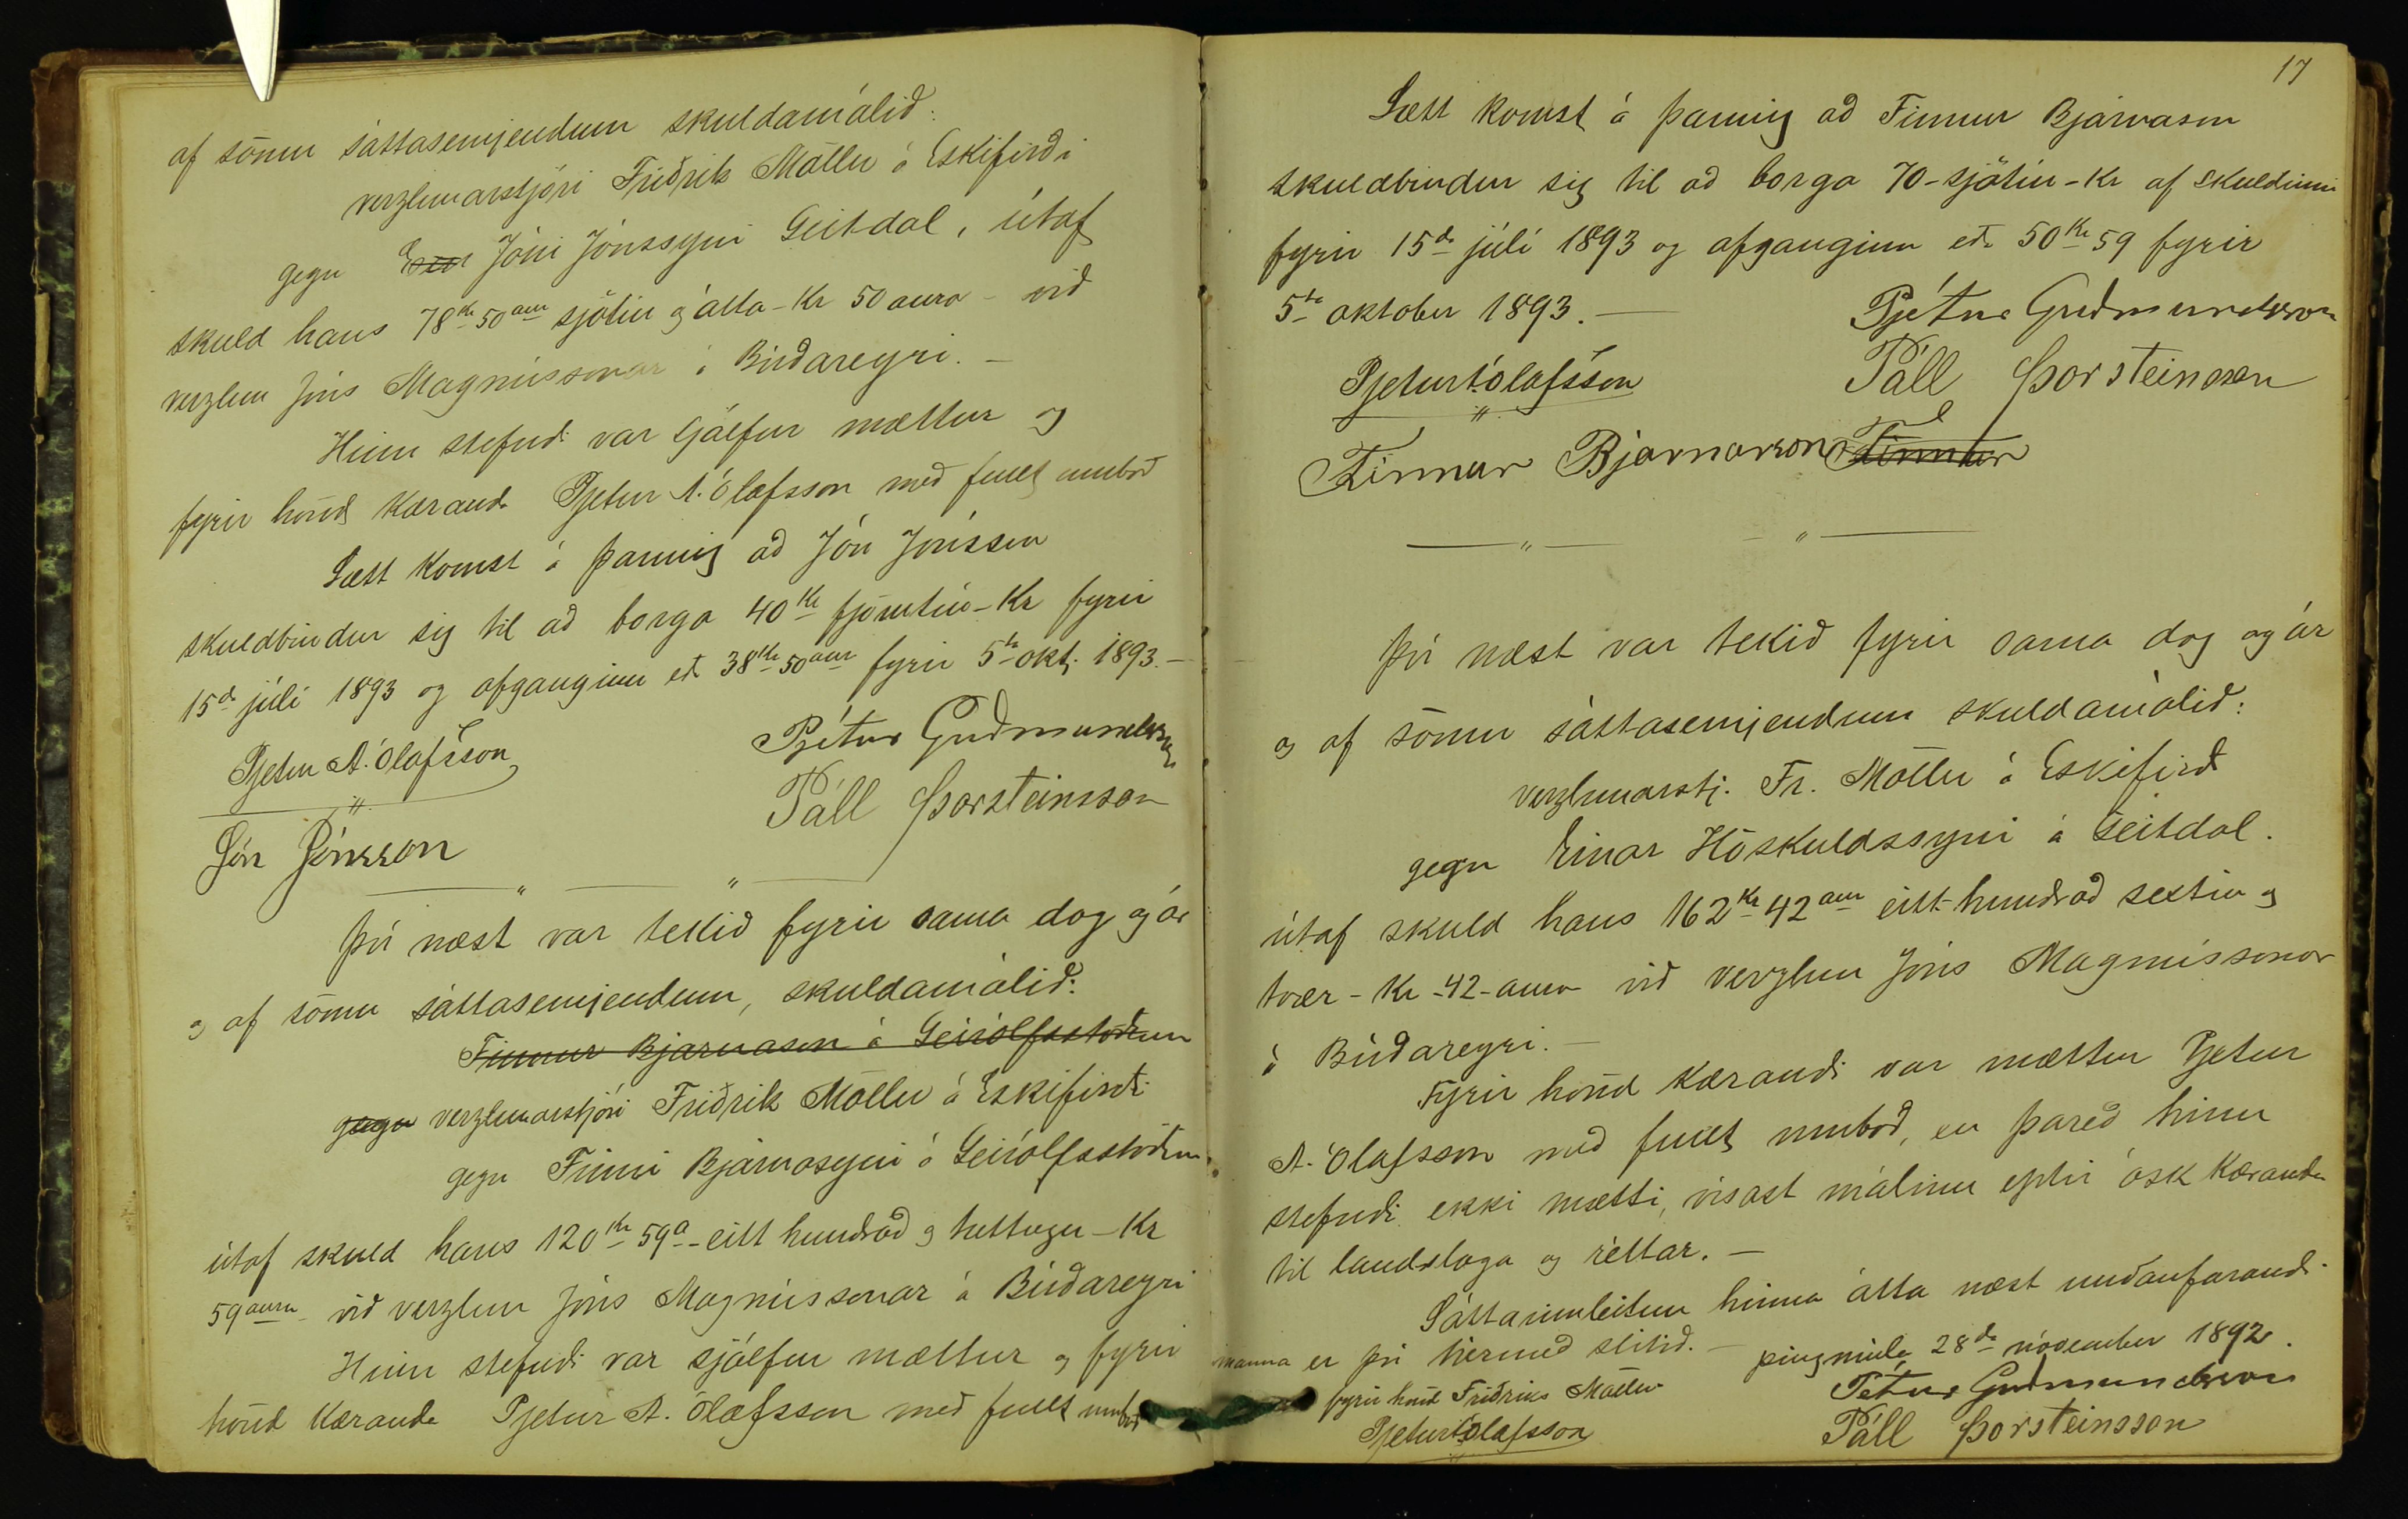 af sömu sáttasemjendum skuldamálið:
verzlunarstjóri Friðrik Möller á Eskifirði
gegn Jóni Jónssyni Geitdal, útaf
skuld hans 78 Kr 50 aur sjötíu og átta - Kr 50 aura - við
verzlun Jóns Magnússonar á Búðareyri. -
Hinn stefndi var sjálfur mættur og
fyrir hönd kæranda Pjetur A. Ólafsson með fullt umboð
Sætt komst á þannig að Jón Jónsson
skuldbindur sig til að borga 40 Kr fjörutíu - Kr fyrir
15da júlí 1893 og afganginn eða 38 Kr 50 aur fyrir 5ta okt. 1893. -
Pjetur A. Ólafsson
Pjétur Guðmundsson
Páll Þorsteinsson
Jón Jónsson
Því næst var tekið fyrir sama dag og ár
og af sömu sáttasemjendum, skuldamálið:
Finnur Bjarnason á Geirólfsstöðum
gegn verzlunarstjóri Friðrik Möller á Eskifirði
gegn Finni Bjarnasyni á Geirólfsstöðum
útaf skuld hans 120 Kr 59 a - eitt hundrað og tuttugu - Kr
59 aura - við verzlun Jóns Magnússonar á Búðareyri
Hinn stefndi var sjálfur mættur og fyrir
hönd kæranda Pjetur A. Ólafsson með fullt umboð
17
Sætt komst á þannig að Finnur Bjarnason
skuldbindur sig til að borga 70 - sjötíu - Kr af skuldinni
fyrir 15da júlí 1893 og afganginn eða 50 Kr 59 fyrir
5ta oktober 1893. -
Pjétur Guðmundsson
Pjetur A. Ólafsson
Páll Þorsteinsson
Finnur Bjarnarson Finnur
Því næst var tekið fyrir sama dag og ár
og af sömu sáttasemjendum skuldamálið:
verzlunarstj. Fr. Möller á Eskifirði
gegn Einar Höskuldssyni á Geitdal.
útaf skuld hans 162 Kr 42 aur eitt-hundrað sextíu og
tvær - Kr - 42 - aura við verzlun Jóns Magnússonar
á Búðareyri. -
Fyrir hönd kæranda var mættur Pjetur
A. Ólafsson með fullt umboð, en þareð hinn
stefndi ekki mætti, vísast málinu eptir ósk kæranda
til landslaga og réttar. -
Sáttaumleitun hinna átta næst undanfarandi
manna er því hérmeð slitið. - Þingmúla 28da nóvember 1892.
fyrir hönd Friðriks Möller
Pétur Guðmundsson
Pjetur A. Ólafsson
Páll Þorsteinsson